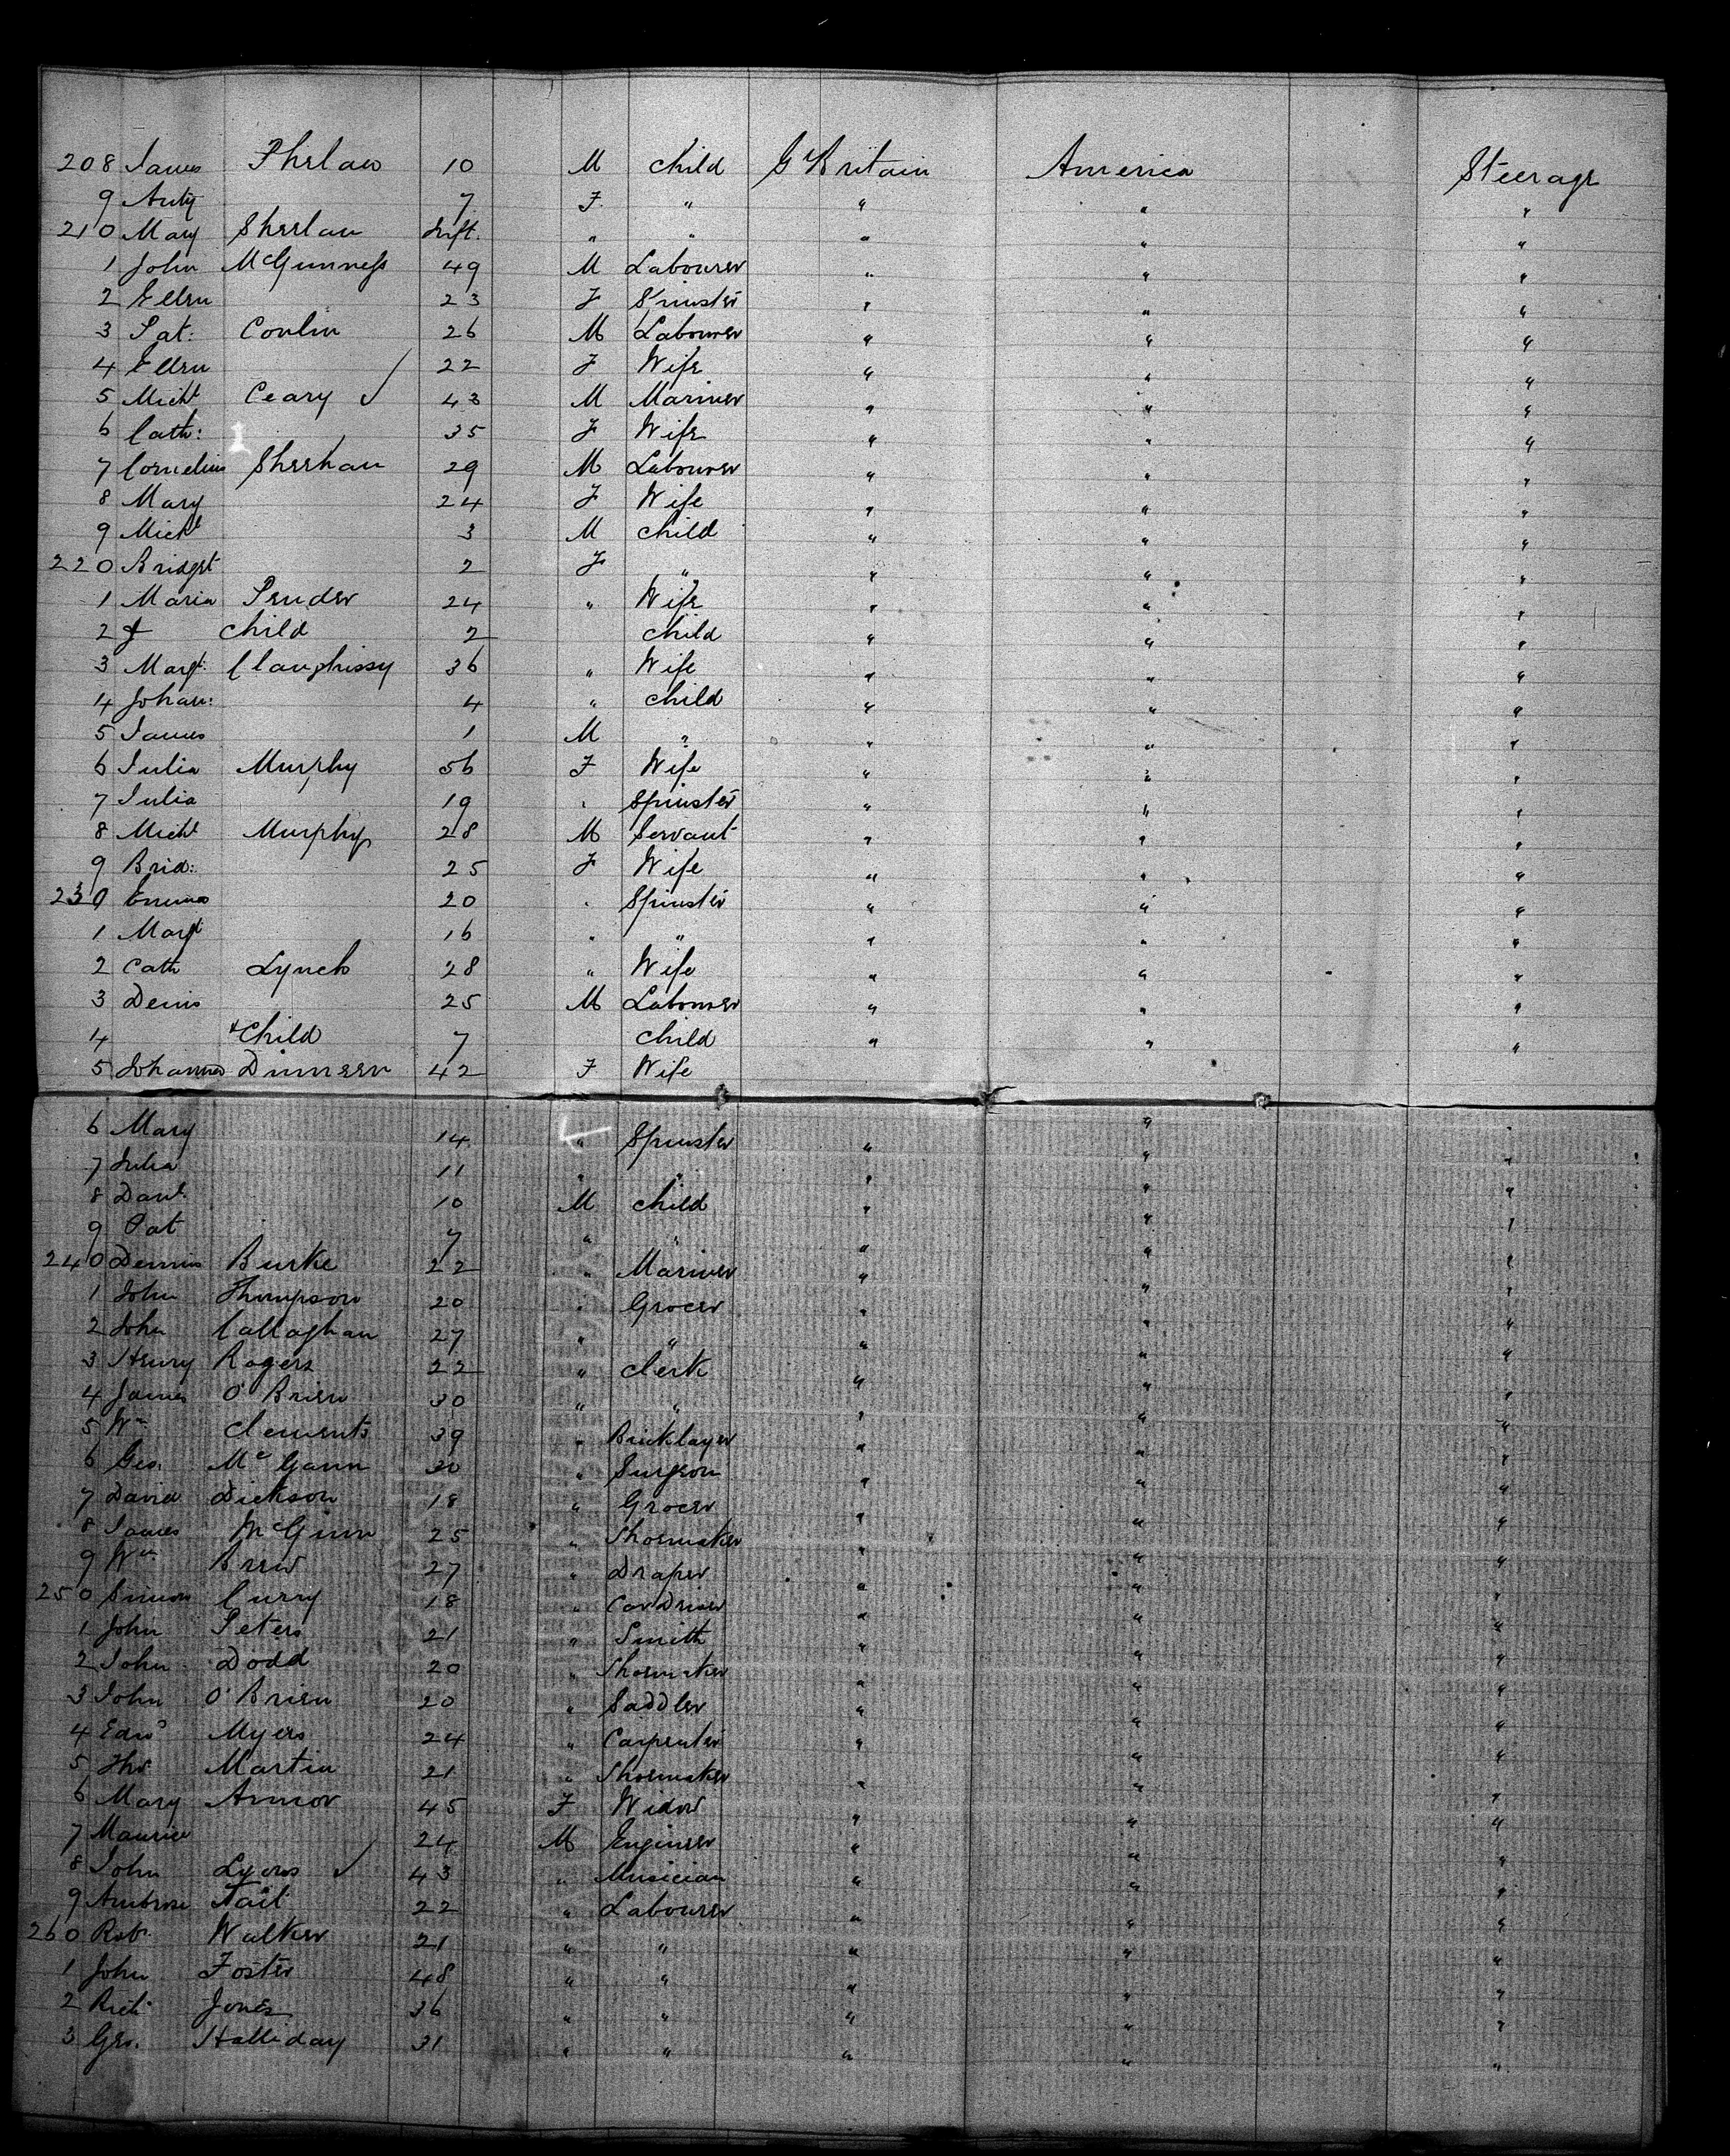 208 James Phelan 10 M Child Gt Britain America Steerage
9 Anty 7 F " " " "
210 Mary Sheelan Inft. " " " " "
1 John McGunness 49 M Labourer " " "
2 Ellen 23 F Spinster " " "
3 Pat: Conlin 26 M Labourer " " "
4 Ellen 22 F Wife " " "
5 Michl Ceary ✓ 43 M Mariner " " "
6 Cath: 35 F Wife " " "
7 Cornelius Sheehan 29 M Labourer " " "
8 Mary 24 F Wife " " "
9 Michl 3 M Child " " "
220 Bridget 2 F " " " "
1 Maria Pender 24 " Wife " " "
2 & Child 2 Child " " "
3 Margt: Claughissy 36 " Wife " " "
4 Johan: 4 " Child " " "
5 James 1 M " " " "
6 Julia Murphy 56 F Wife " " "
7 Julia 19 " Spinster " " "
8 Michl Murphy 28 M Servant " " "
9 Brid: 25 F Wife " " "
230 Emma 20 " Spinster " " "
1 Margt 16 " " " " "
2 Cath Lynch 28 " Wife " " "
3 Denis 25 M Labourer " " "
4 & Child 7 Child " " "
5 Johanna Dinneen 42 F Wife
6 Mary 14 " Spinster " " "
7 Julia 11 " " " " "
8 Danl. 10 M Child " " "
9 Pat 7 " " " " "
240 Dennis Burke 22 " Mariner " " "
1 John Thompson 20 " Grocer " " "
2 John Callaghan 27 " " " " "
3 Henry Rogers 22 " Clerk " " "
4 James O'Brien 30 " " " " "
5 Wm Clements 39 " Bricklayer " " "
6 Geo. McGann 30 " Surgeon " " "
7 David Dickson 18 " Grocer " " "
8 James McGinn 25 " Shoemaker " " "
9 Wm Brew 27 " Draper " " "
250 Simon Curry 18 " Car Driver " " "
1 John Peters 21 " Smith " " "
2 John Dodd 20 " Shoemaker " " "
3 John O'Brien 20 " Saddler " " "
4 Edwd Myers 24 " Carpenter " " "
5 Thos Martin 21 " Shoemaker " " "
6 Mary Armor 45 F Widow " " "
7 Maurice 24 M Engineer " " "
8 John Lyons ✓ 43 " Musician " " "
9 Ambrose Tait 22 " Labourer " " "
260 Robt. Walker 21 " " " " "
1 John Foster 48 " " " " "
2 Richd Jones 36 " " " " "
3 Geo. Halliday 31 " " " " "